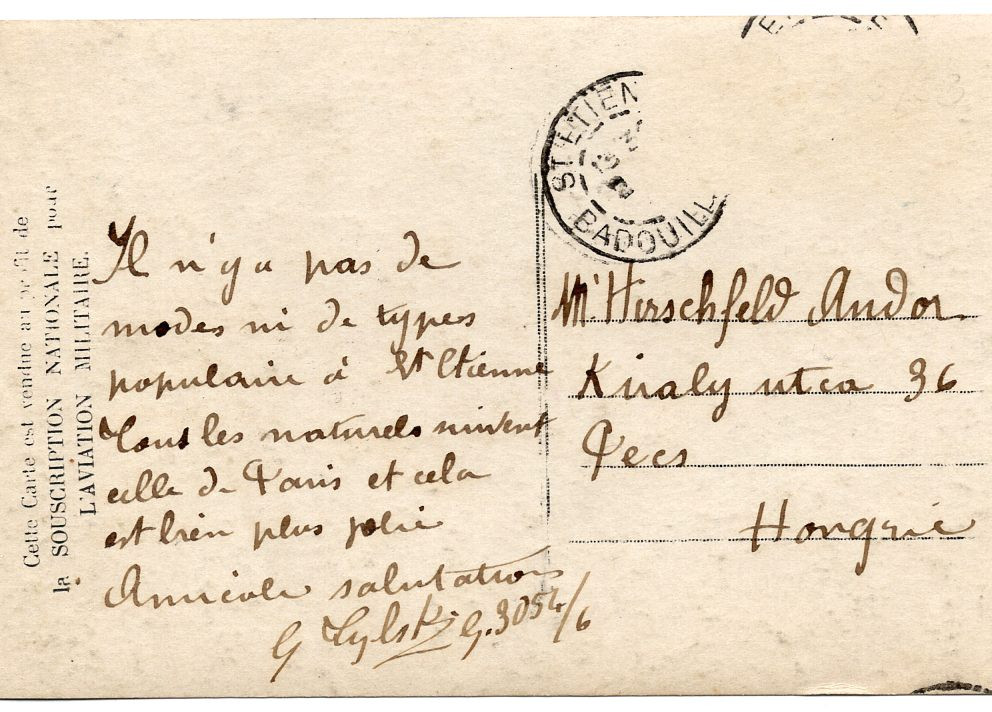 Cette Carte est vendue au profit de
la SOUSCRIPTION NATIONALE pour
L'AVIATION MILITAIRE.
Il n'y a pas de
modes ni de types
populaire à St Etienne
Tous les naturels suivent
celle de Paris et cela
est bien plus jolie
Amicale salutation
G. 3054/6
ST ETIEN
BADOUILL
Mr Hirschfeld Andor
Kiraly utca 36
Pecs
Hongrie